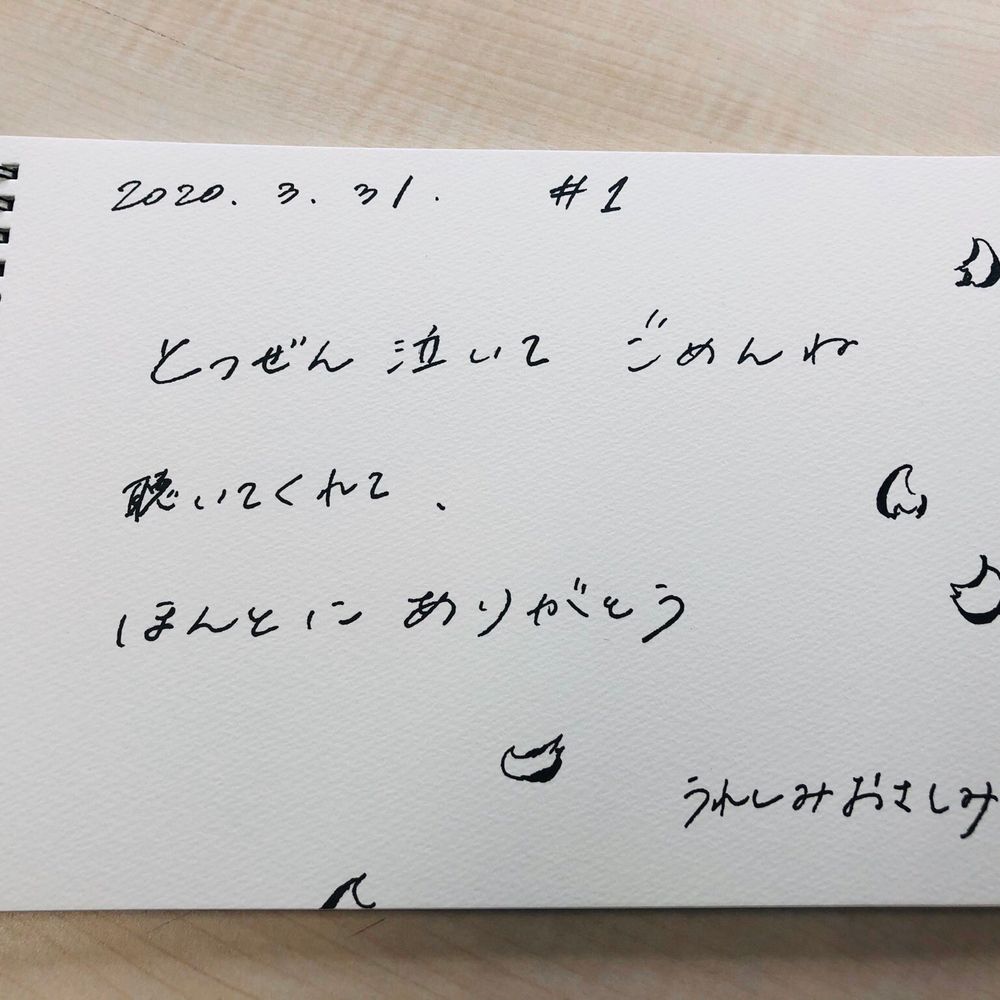 2020. 3. 31. #1
とつぜん 泣いて ごめんね
聴いてくれて、
ほんとに ありがとう
うれしみおさしみ